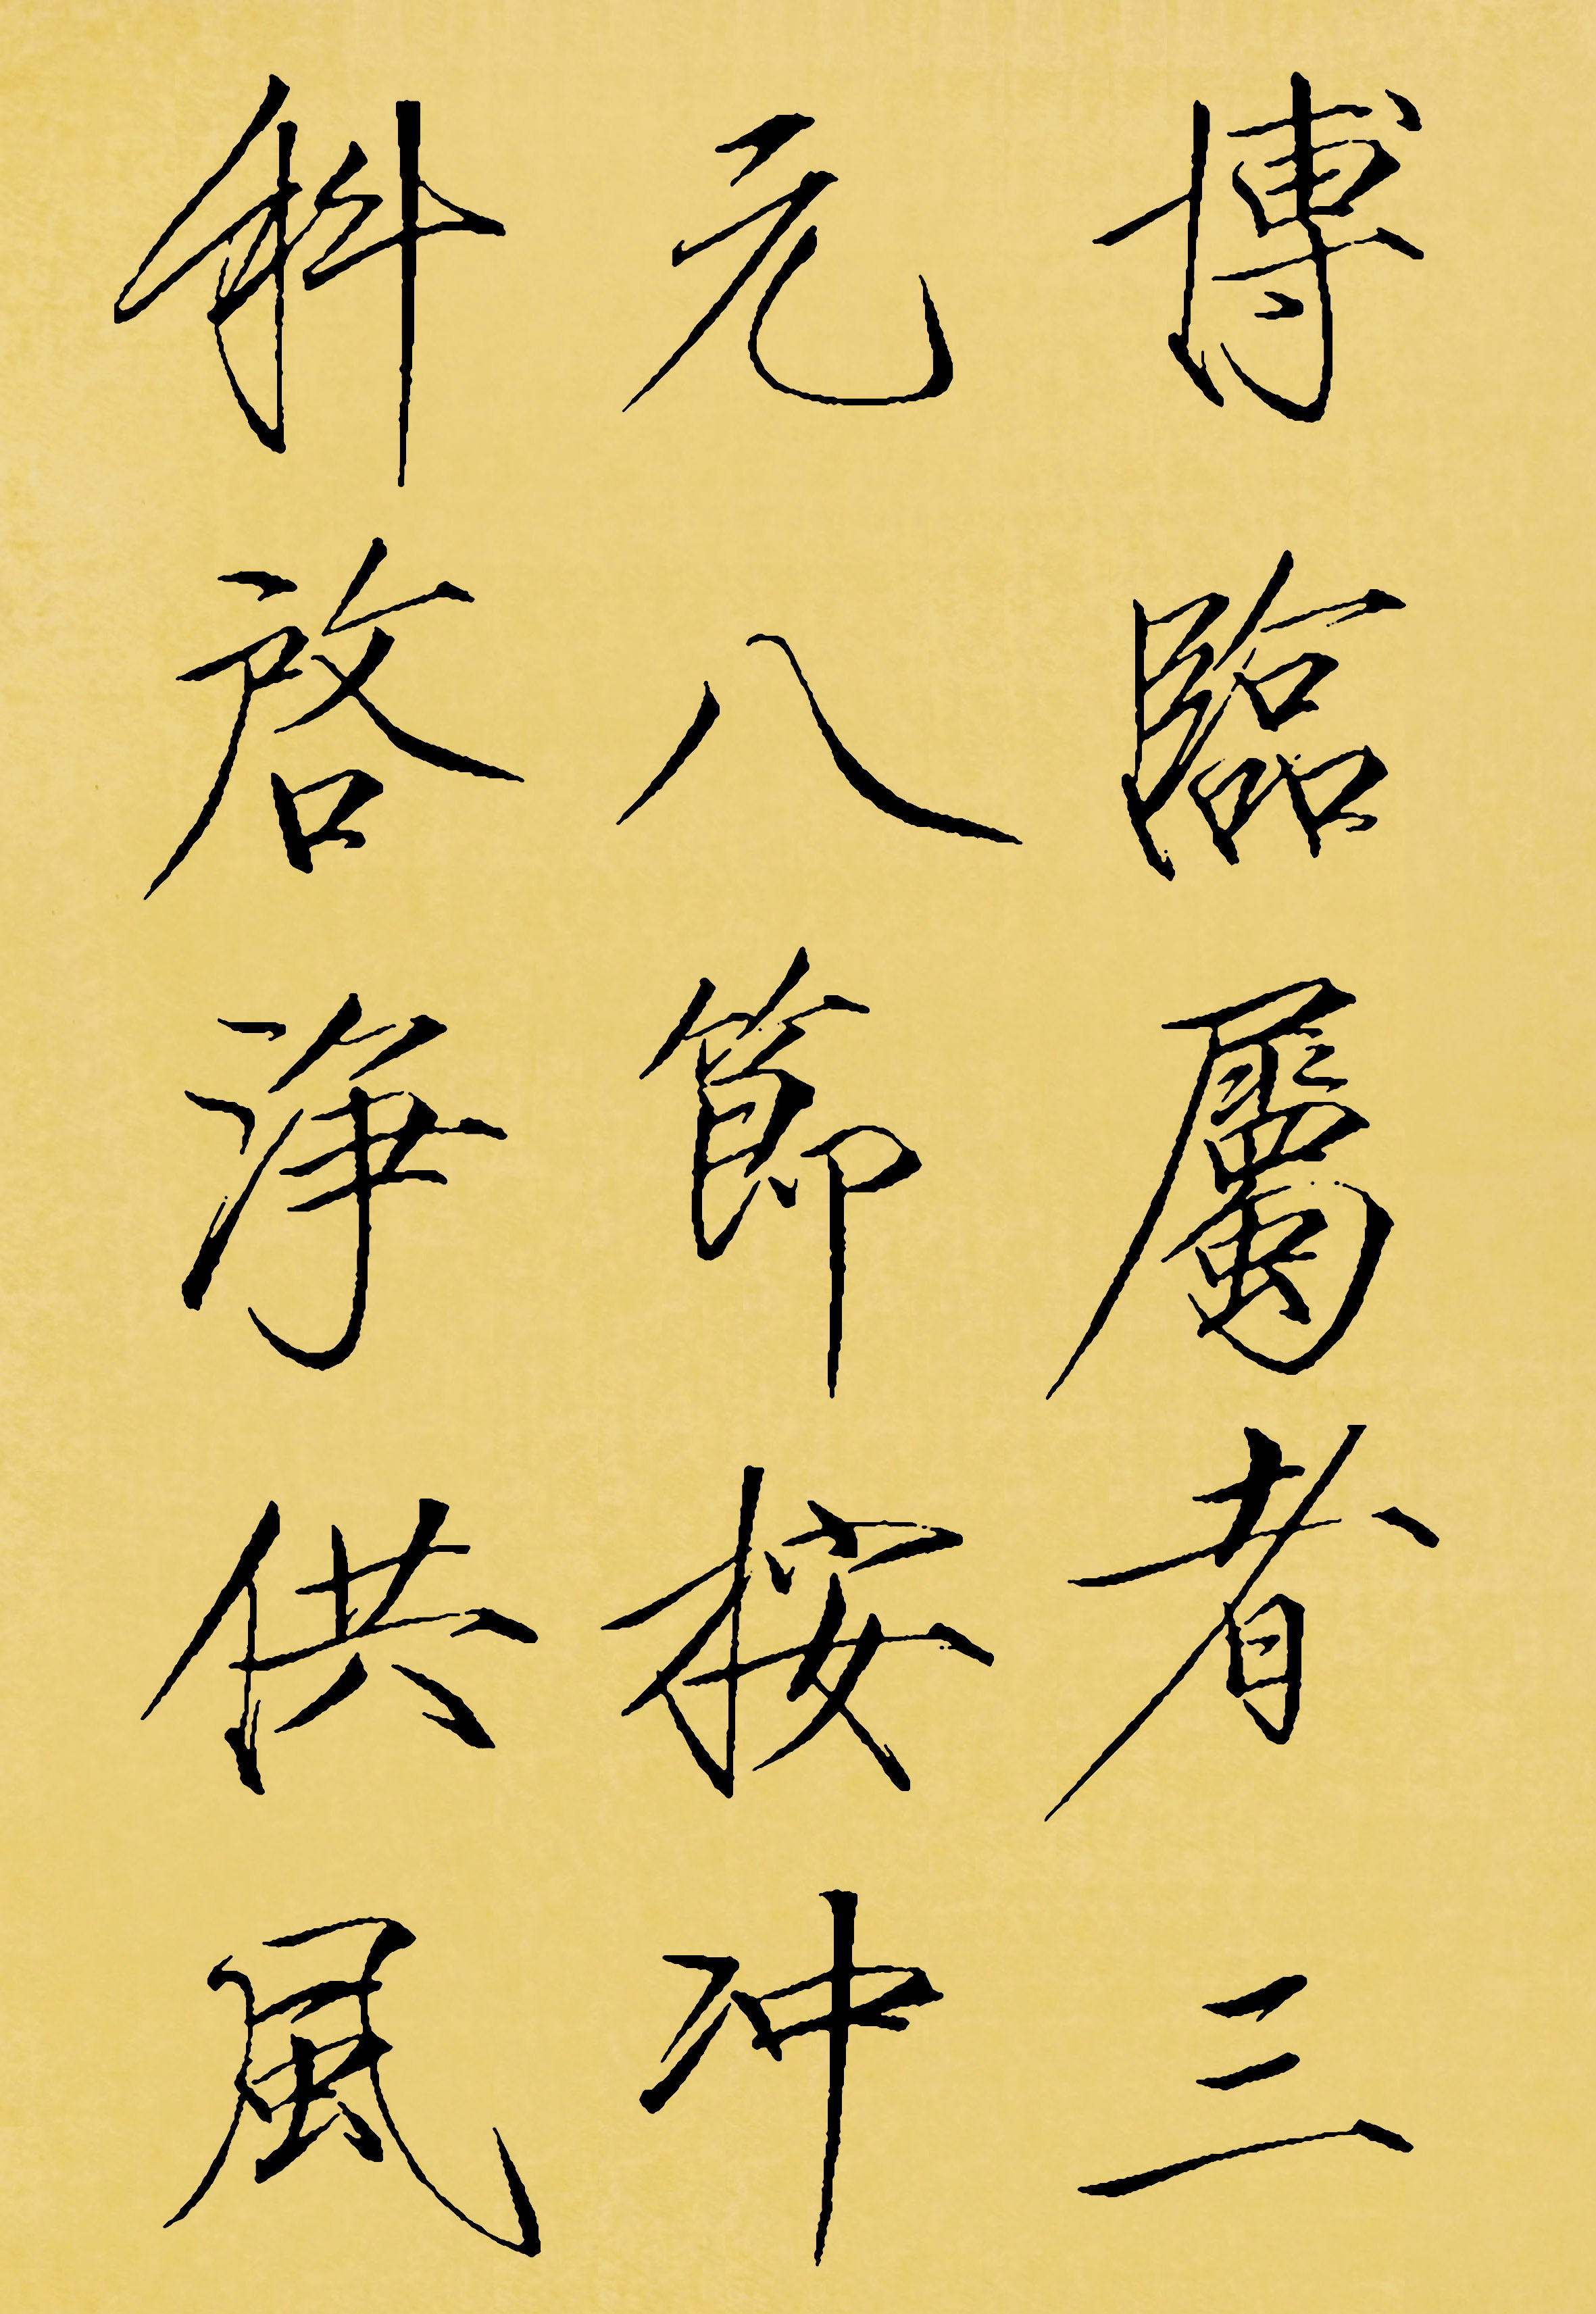 博臨屬者三
元八節按沖
科啓淨供風